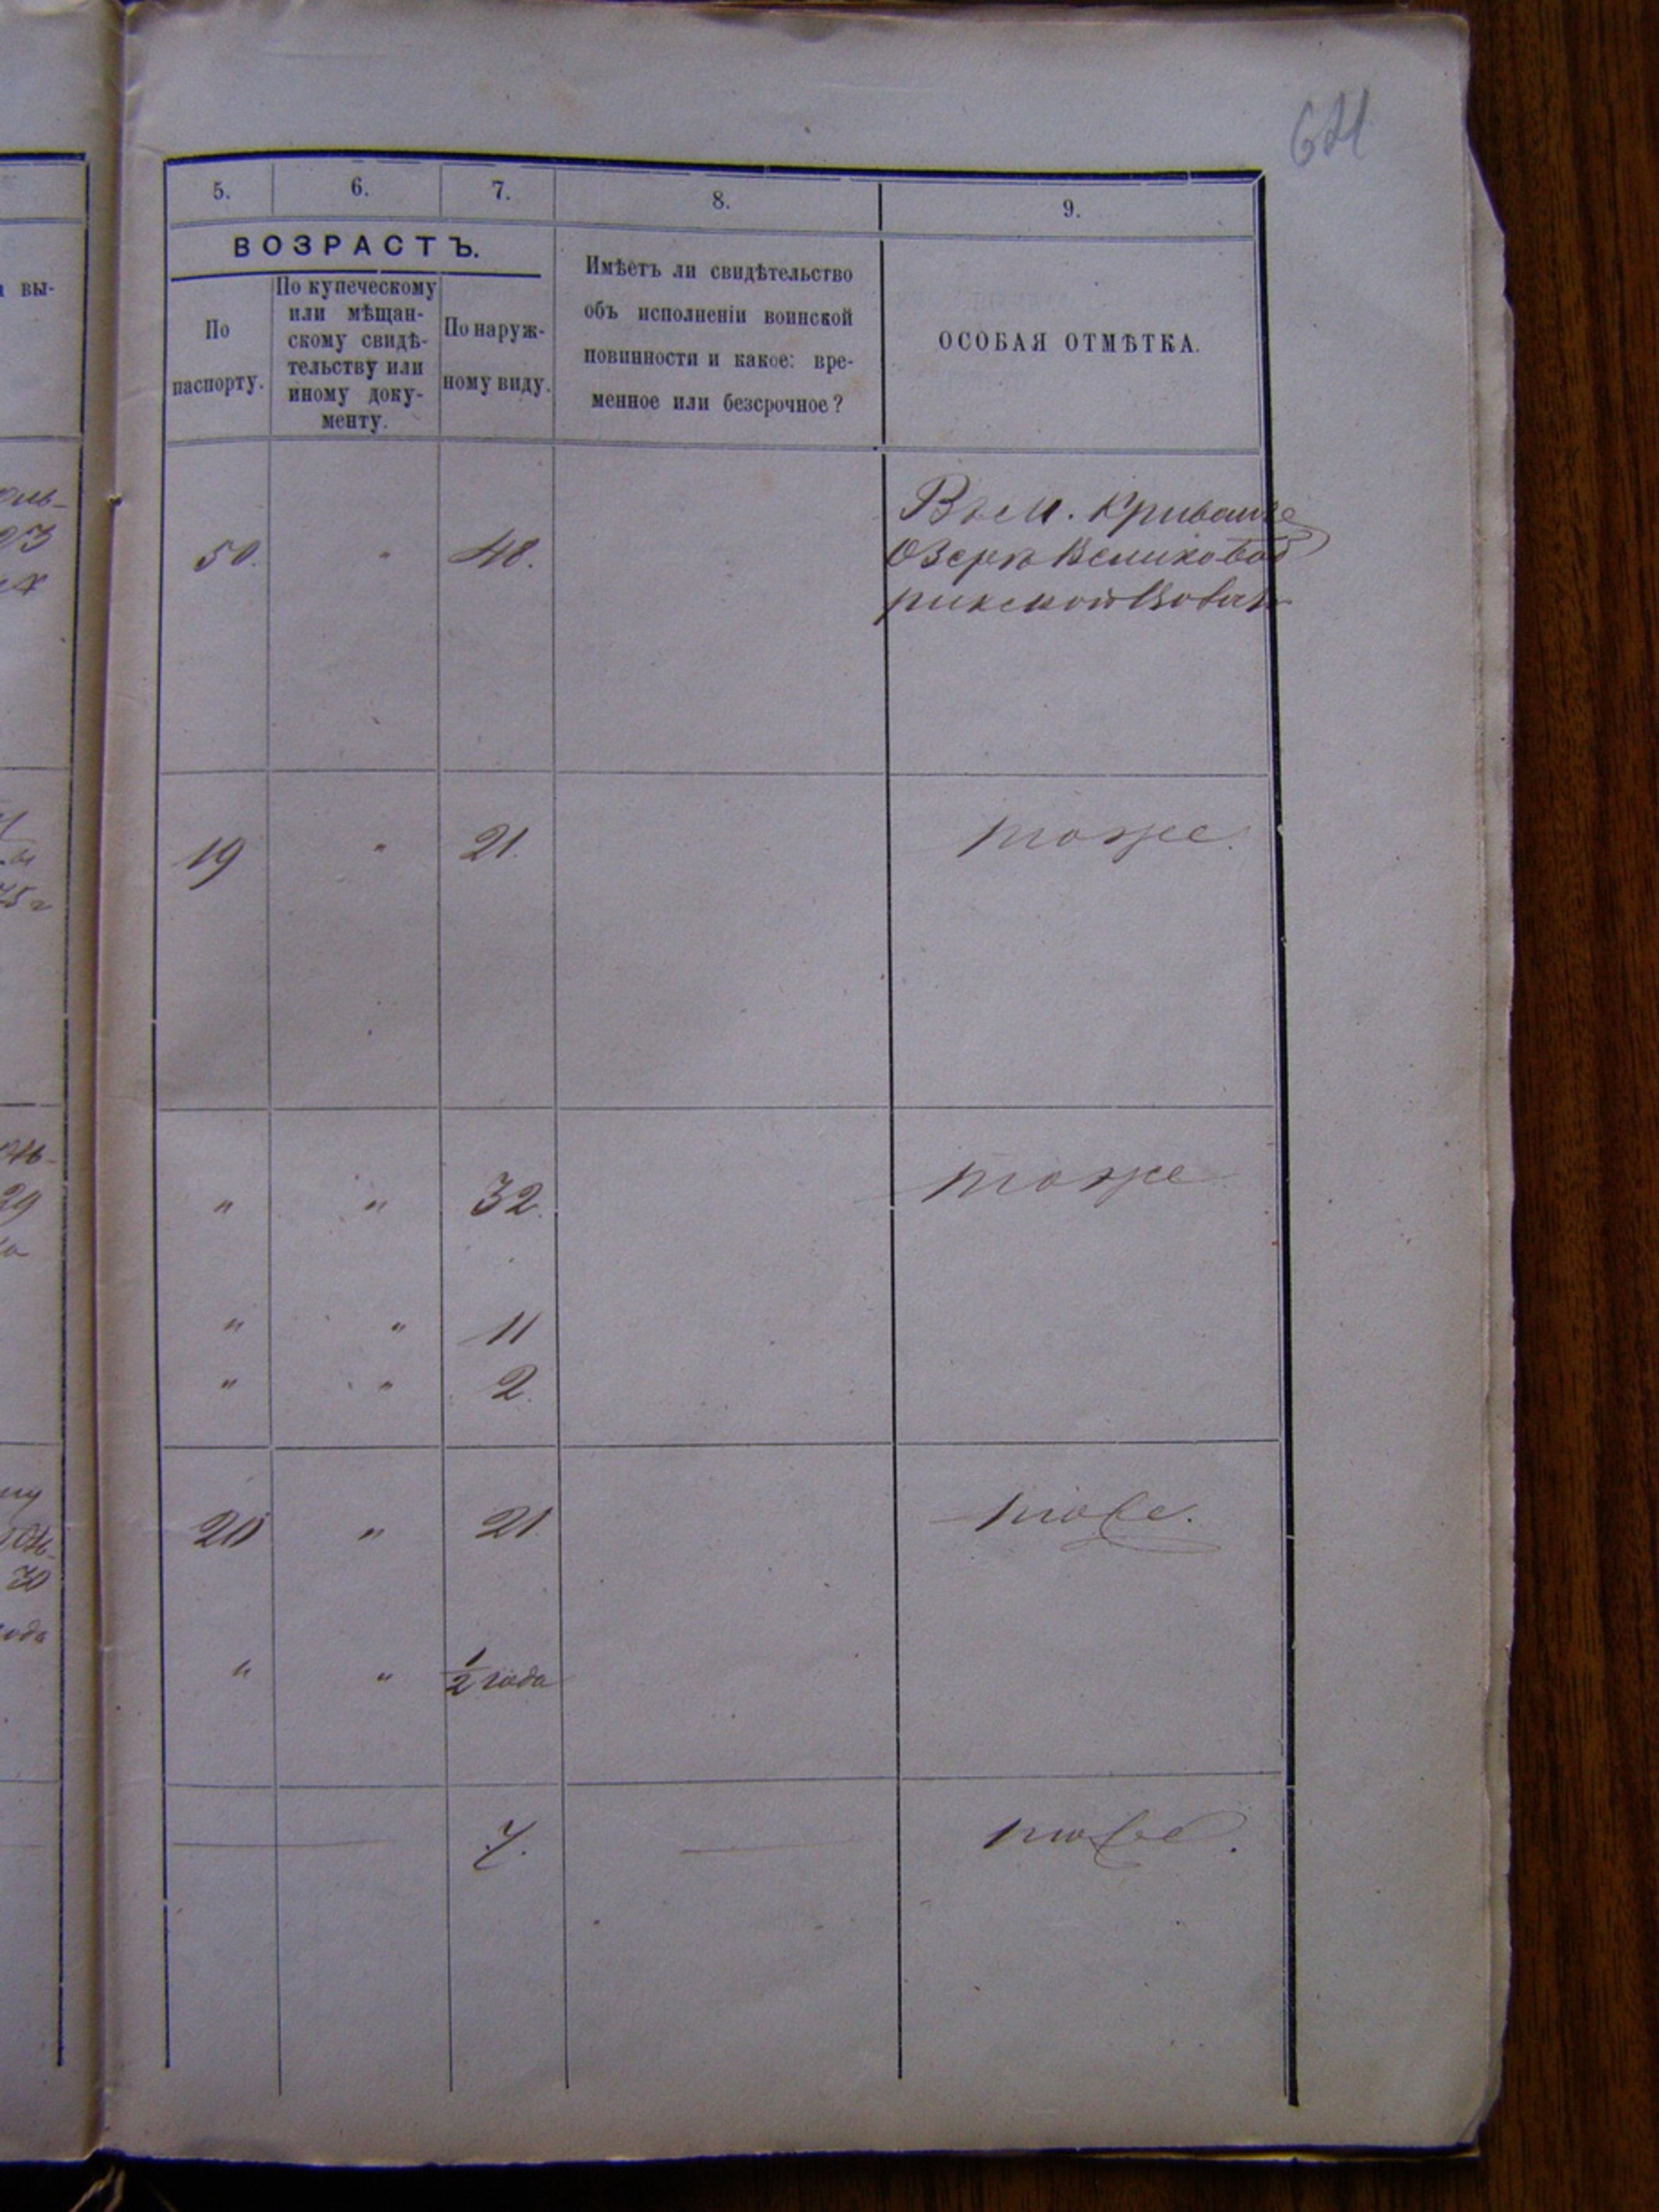 641
5. 6. 7. 8. 9.
ВОЗРАСТЪ.
По
паспорту.
По купеческому
или мѣщан-
скому свидѣ-
тельству или
иному доку-
менту.
По наруж-
ному виду.
Имѣетъ ли свидѣтельство
объ исполненіи воинской
повинности и какое: вре-
менное или безсрочное?
ОСОБАЯ ОТМѢТКА.
вы-
Въ
50. " 48.
Озеръ Велико
19 " 21. тоже.
" " 32. тоже
" " 11
" " 2.
20 " 21. тоже.
" " 1/2 года
7. тоже.
23
75 г
29
30
года